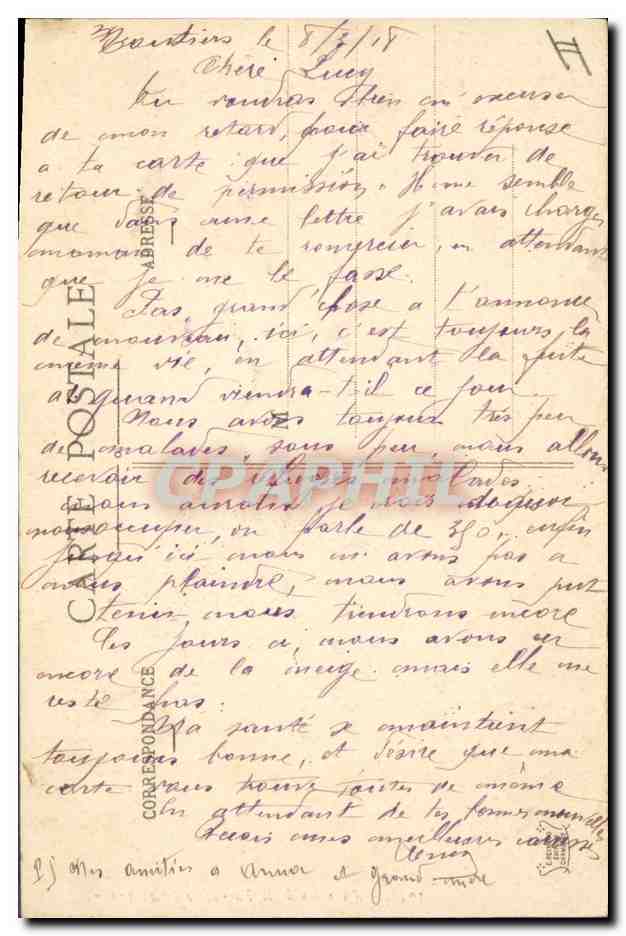 Moutiers le 8/3/18
Chère Lucy
Tu voudras bien m'excuser
de mon retard, pour faire réponse
a ta carte que j'ai trouver de
retour de permission. Il me semble
que dans une lettre j'avais charger
maman de te remercier, en attendant
que je me le fasse.
Pas grand chose a t'annoncer
de nouveau, ici, c'est toujours la
même vie, en attendant la fuite
quand viendra-t-il ce jour.
Nous avons toujours très peu
de malades, sous peu, nous allons
recevoir des malades
nous aurons je crois de quoi
nous occuper, on parle de 350, enfin
jusqu'ici nous n'avons pas a
nous plaindre, nous avons put
tenir, nous tiendrons encore
Ces jours ci, nous avons eu
encore de la neige mais elle ne
reste pas.
Ma santé se maintient
toujours bonne, et désire que ma
carte vous trouve toutes de même
En attendant de tes bonnes nouvelles
Reçois mes meilleures
Mes amitiés a Anna et Grand-mère
CARTE POSTALE
CORRESPONDANCE
ADRESSE
CPAPHIL